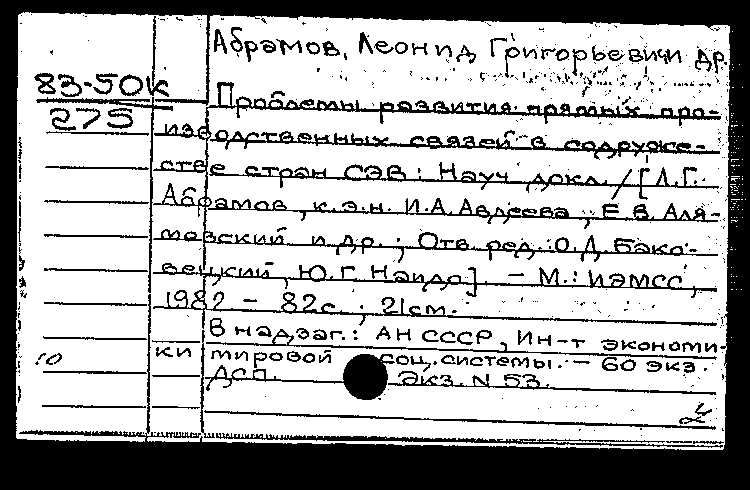 Абрамов, Леонид Григорьевич и др.
83-50к
275
Проблемы развития прямых про-
изводственных связей в содруже-
стве стран СЭВ: Науч. докл. / [Л.Г.
Абрамов, к.э.н. И.А. Авдеева, Е.В. Аля-
мовский и др.; Отв. ред.: О.Д. Бако-
вецкий, Ю.Г. Наидо]. - М.: ИЭМСС,
1982 - 82с.; 21см.
В надзаг.: АН СССР, Ин-т экономи-
ки мировой соц. системы. - 60 экз.
ДСП. Экз. N 53.
10